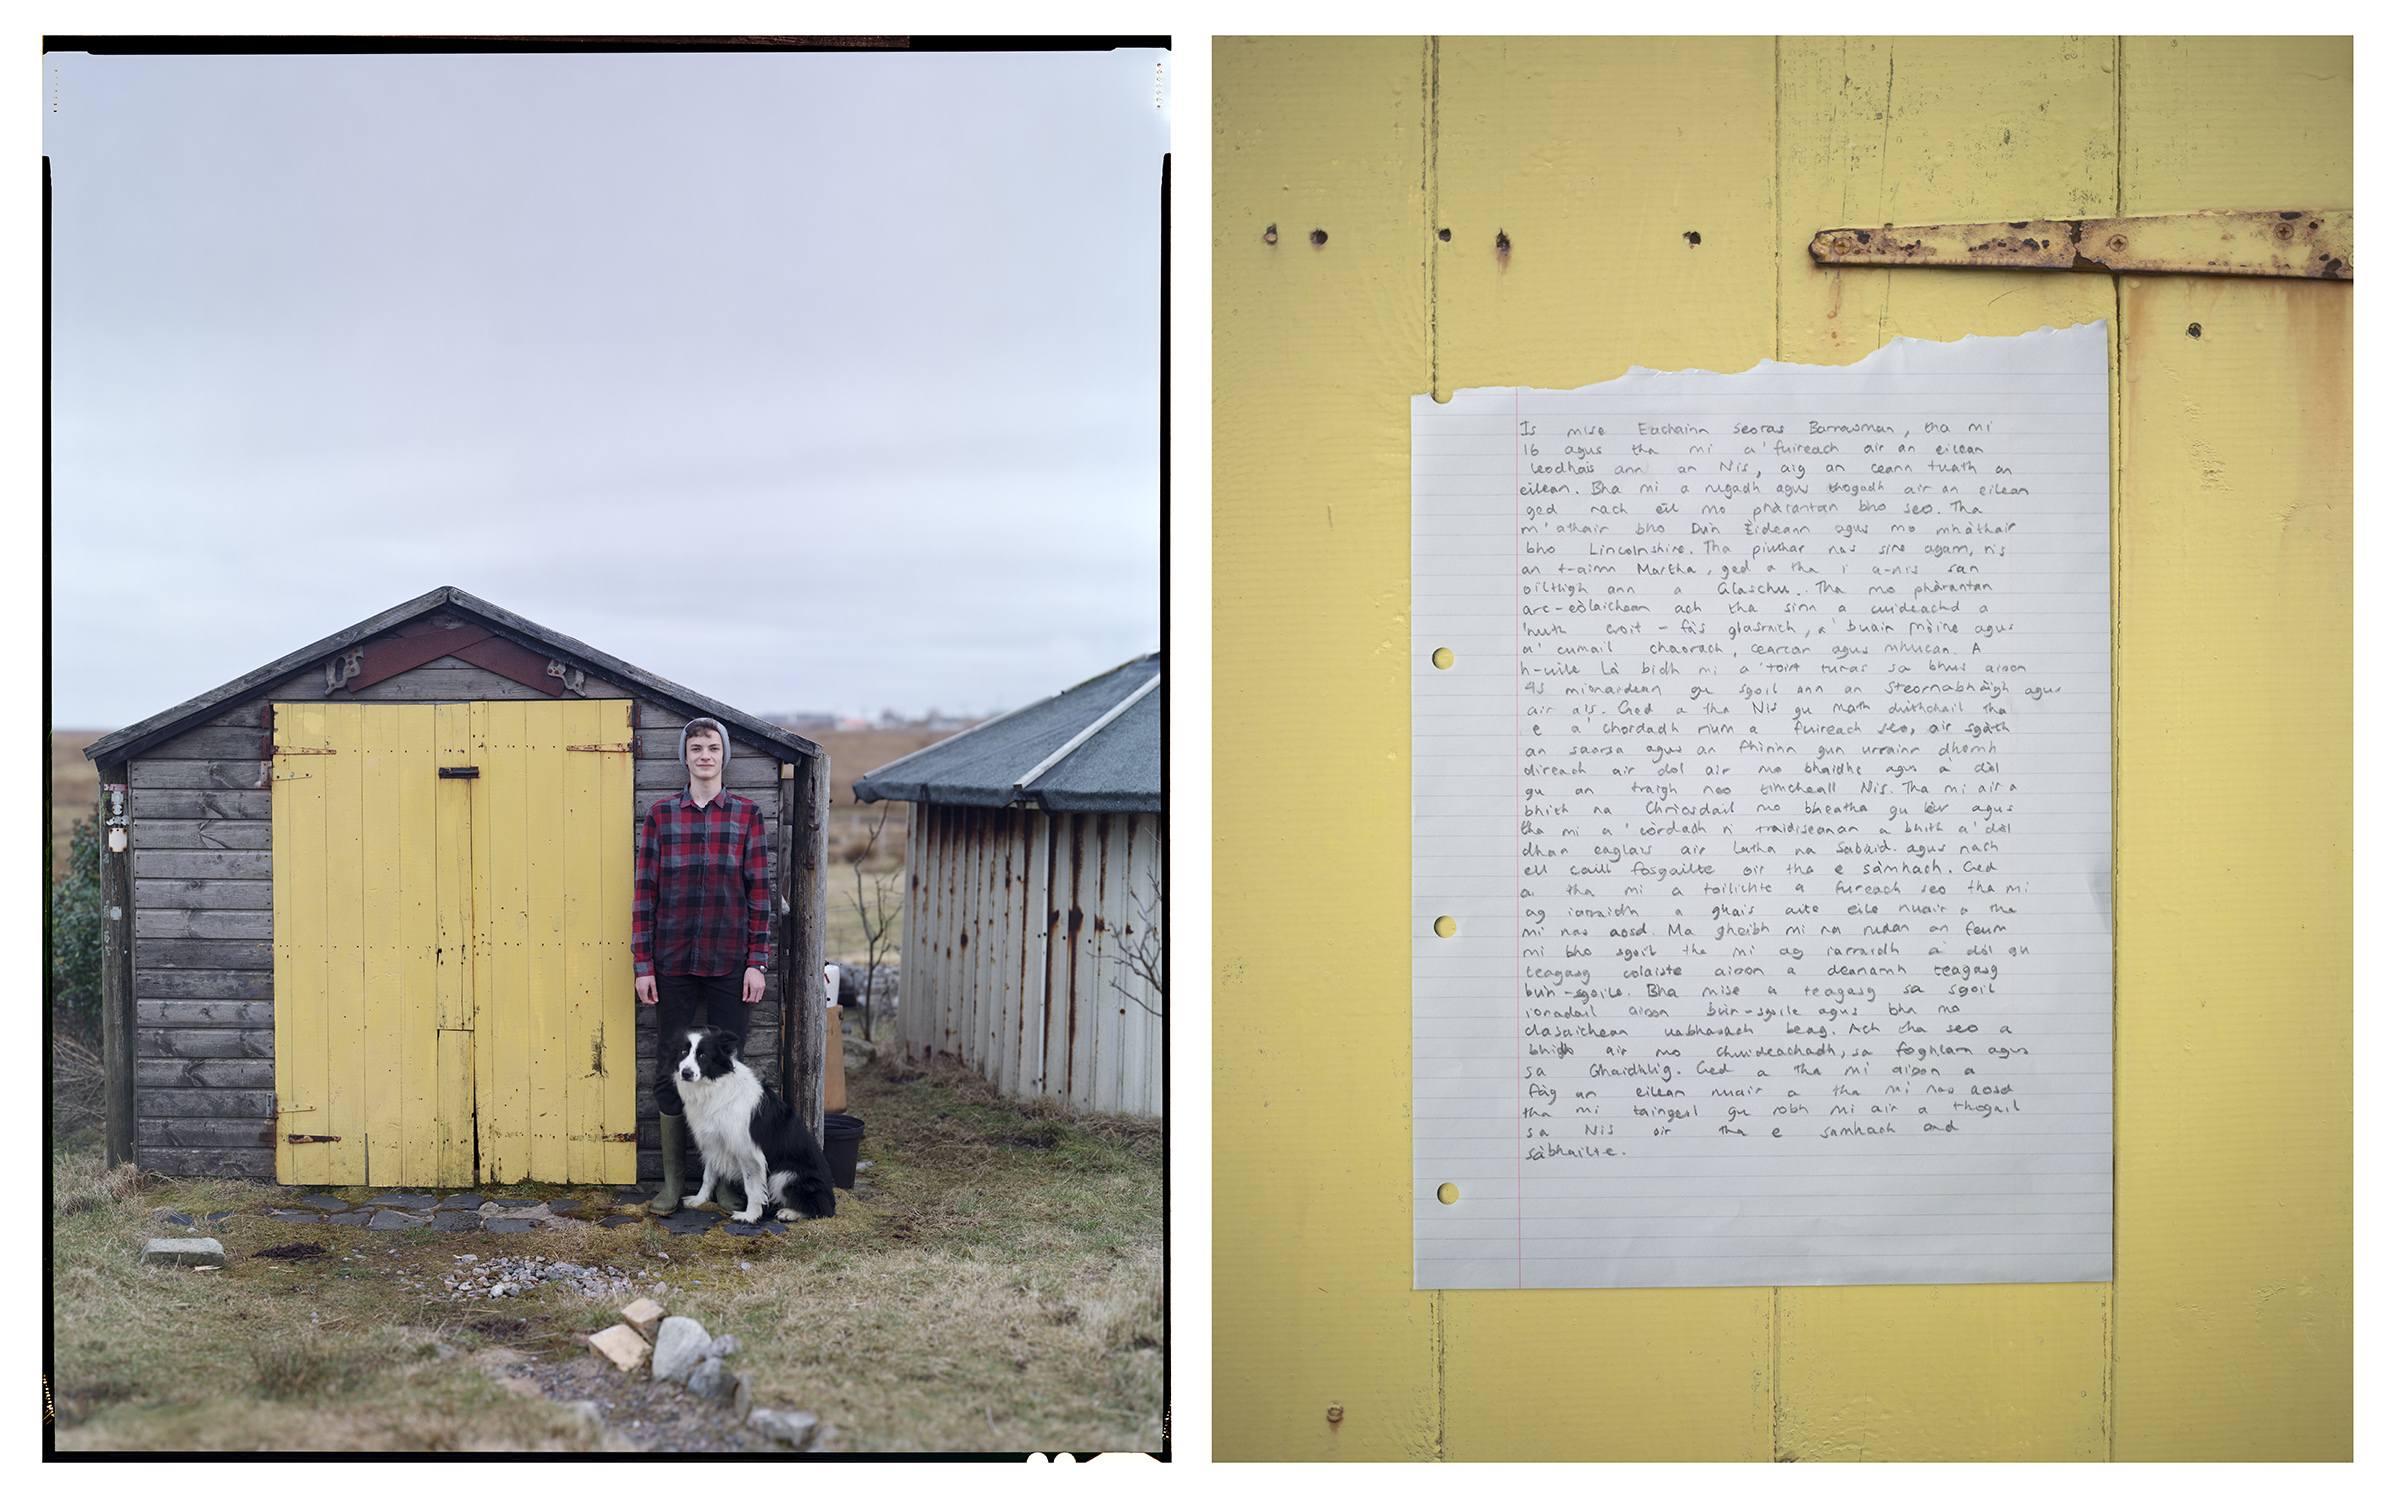 Is mise Eachainn Seoras Barrowman, tha mi
16 agus tha mi a' fuireach air an eilean
leodhais ann an Nis, aig an ceann tuath an
eilean. Bha mi a rugadh agus thogadh air an eilean
ged nach eil mo phàrantan bho seo. Tha
m'athair bho Dùn Èideann agus mo mhàthair
bho Lincolnshire. Tha piuthar nas sine agam, ris
an t-ainm Martha, ged a tha i a-nis san
oilthigh ann a Glaschu. Tha mo phàrantan
arc-eòlaichean ach tha sinn a cuideachd a
'ruith croit - fàs glasraich, a' buain mòine agus
a' cumail chaorach, cearcan agus mhucan. A
h-uile Là bidh mi a 'toirt turas sa bhus airson
45 mionaidean gu sgoil ann an Steornabhàigh agus
air ais. Ged a tha Nis gu math dùthchail tha
e a' chordadh rium a fuireach seo, air sgàth
an saorsa agus an fhìrinn gun urrainn dhomh
direach air dol air mo bhaidhc agus a' dòl
gu an traigh neo timcheall Nis. Tha mi air a
bhith na Chrìosdail mo bheatha gu lèir agus
tha mi a 'còrdadh ri traidiseanan a bhith a' dòl
dhan eaglais air Latha na Sàbaid. agus nach
eil caill fosgailte oir tha e sàmhach. Ged
a tha mi a toilichte a fureach seo tha mi
ag iarraidh a ghais aite eile nuair a tha
mi nas aosd. Ma gheibh mi na rudan an feum
mi bho sgoil tha mi ag iarraidh a' dòl gu
teagasg colaiste airson a deanamh teagasg
bun-sgoile. Bha mise a teagasg sa sgoil
ionadail airson bun-sgoile agus bha na
clasaichean uabhasach beag. Ach tha seo a
bhith air mo chuideachadh, sa foghlam agus
sa Ghaidhlig. Ged a tha mi airson a
fàg an eilean nuair a tha mi nas aosd
tha mi taingeil gu robh mi air a thogail
sa Nis oir tha e samhach and
sàbhailte.